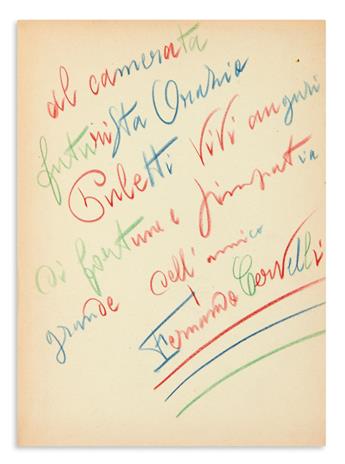 al camerata
futurista Orazio
Puletti vivi auguri
di fortuna e simpatia
grande dell'amico
Fernando Cervelli